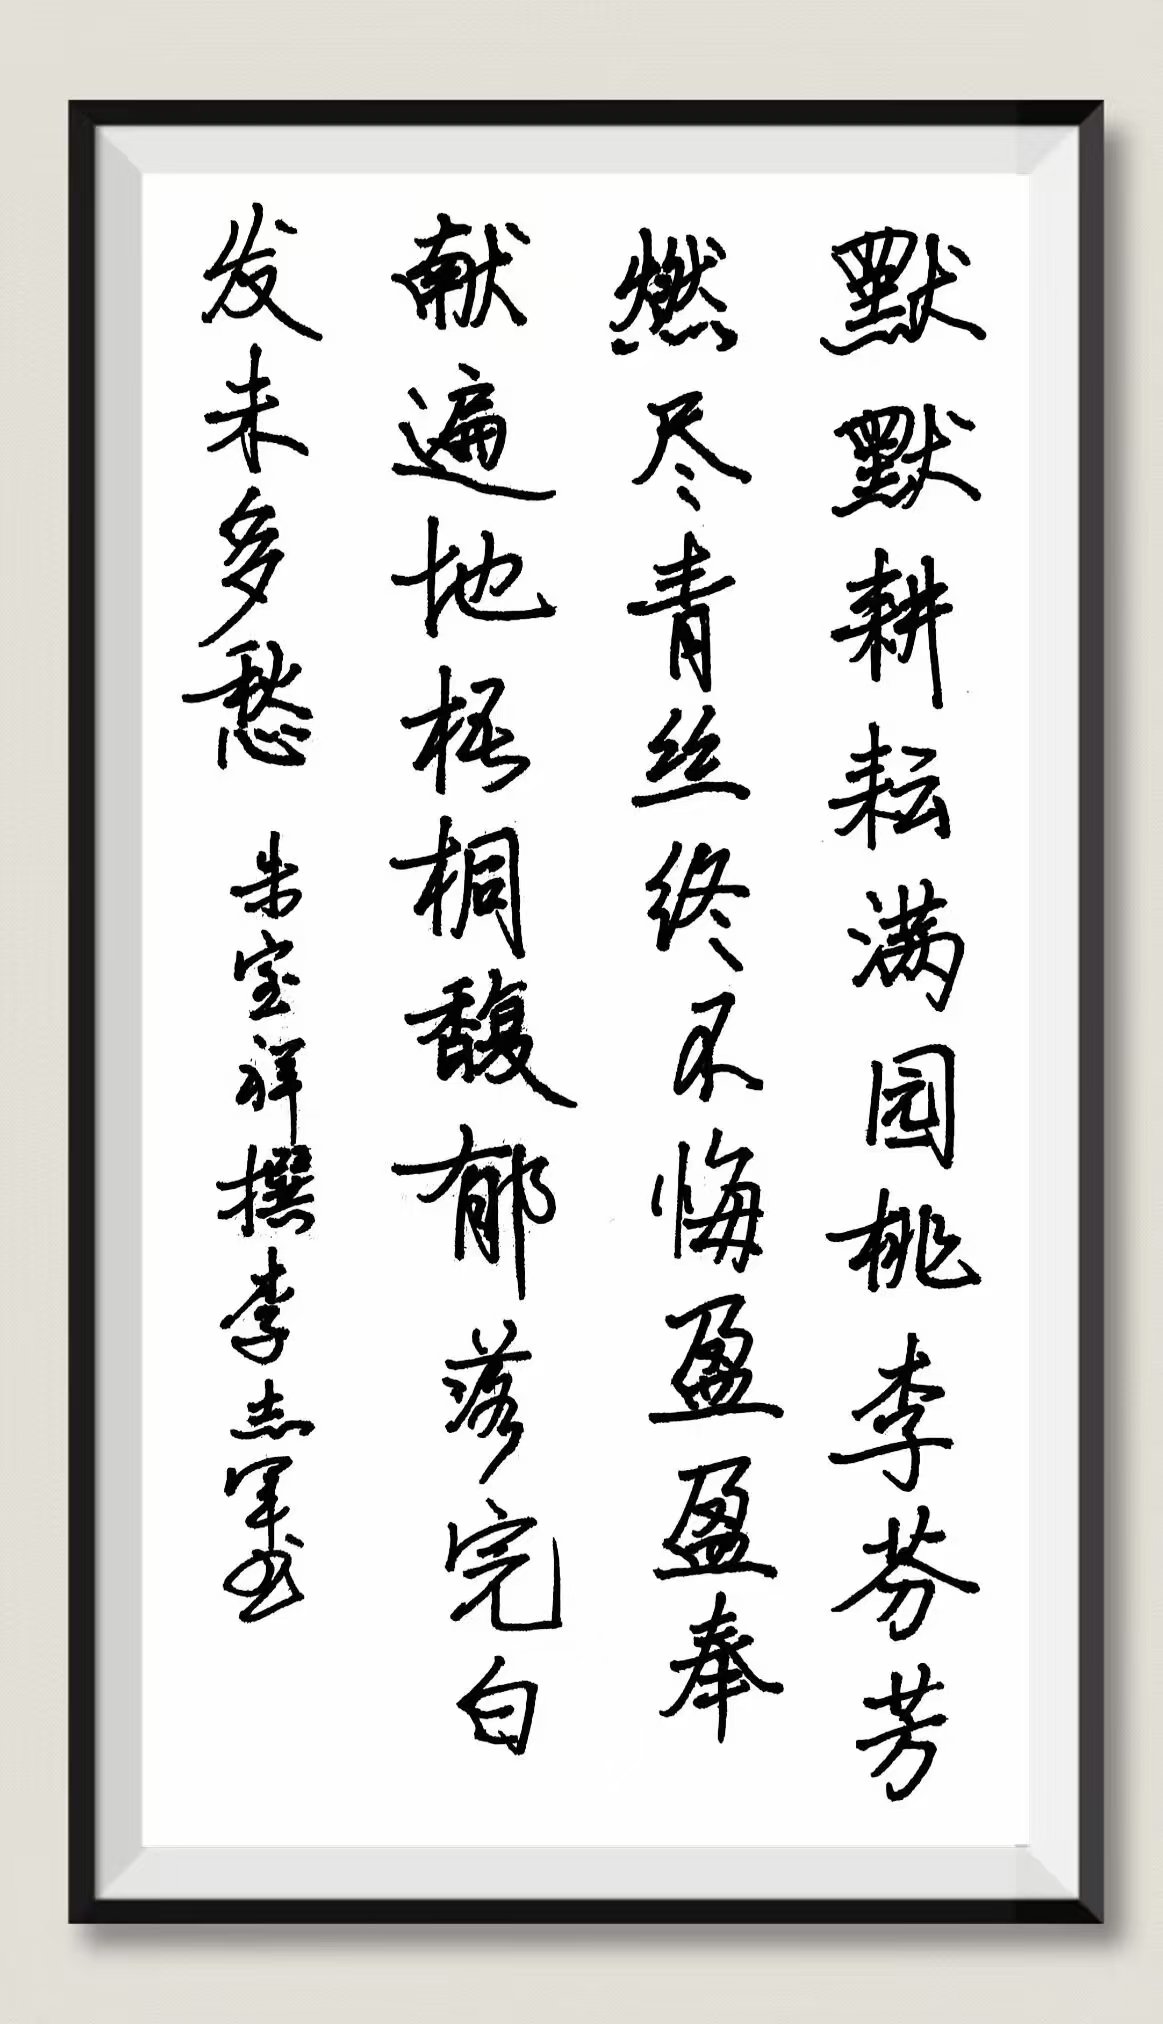 默默耕耘满园桃李芬芳
燃尽青丝终不悔盈盈奉
献遍地梧桐馥郁落完白
发未多愁 朱宝祥撰李志军书